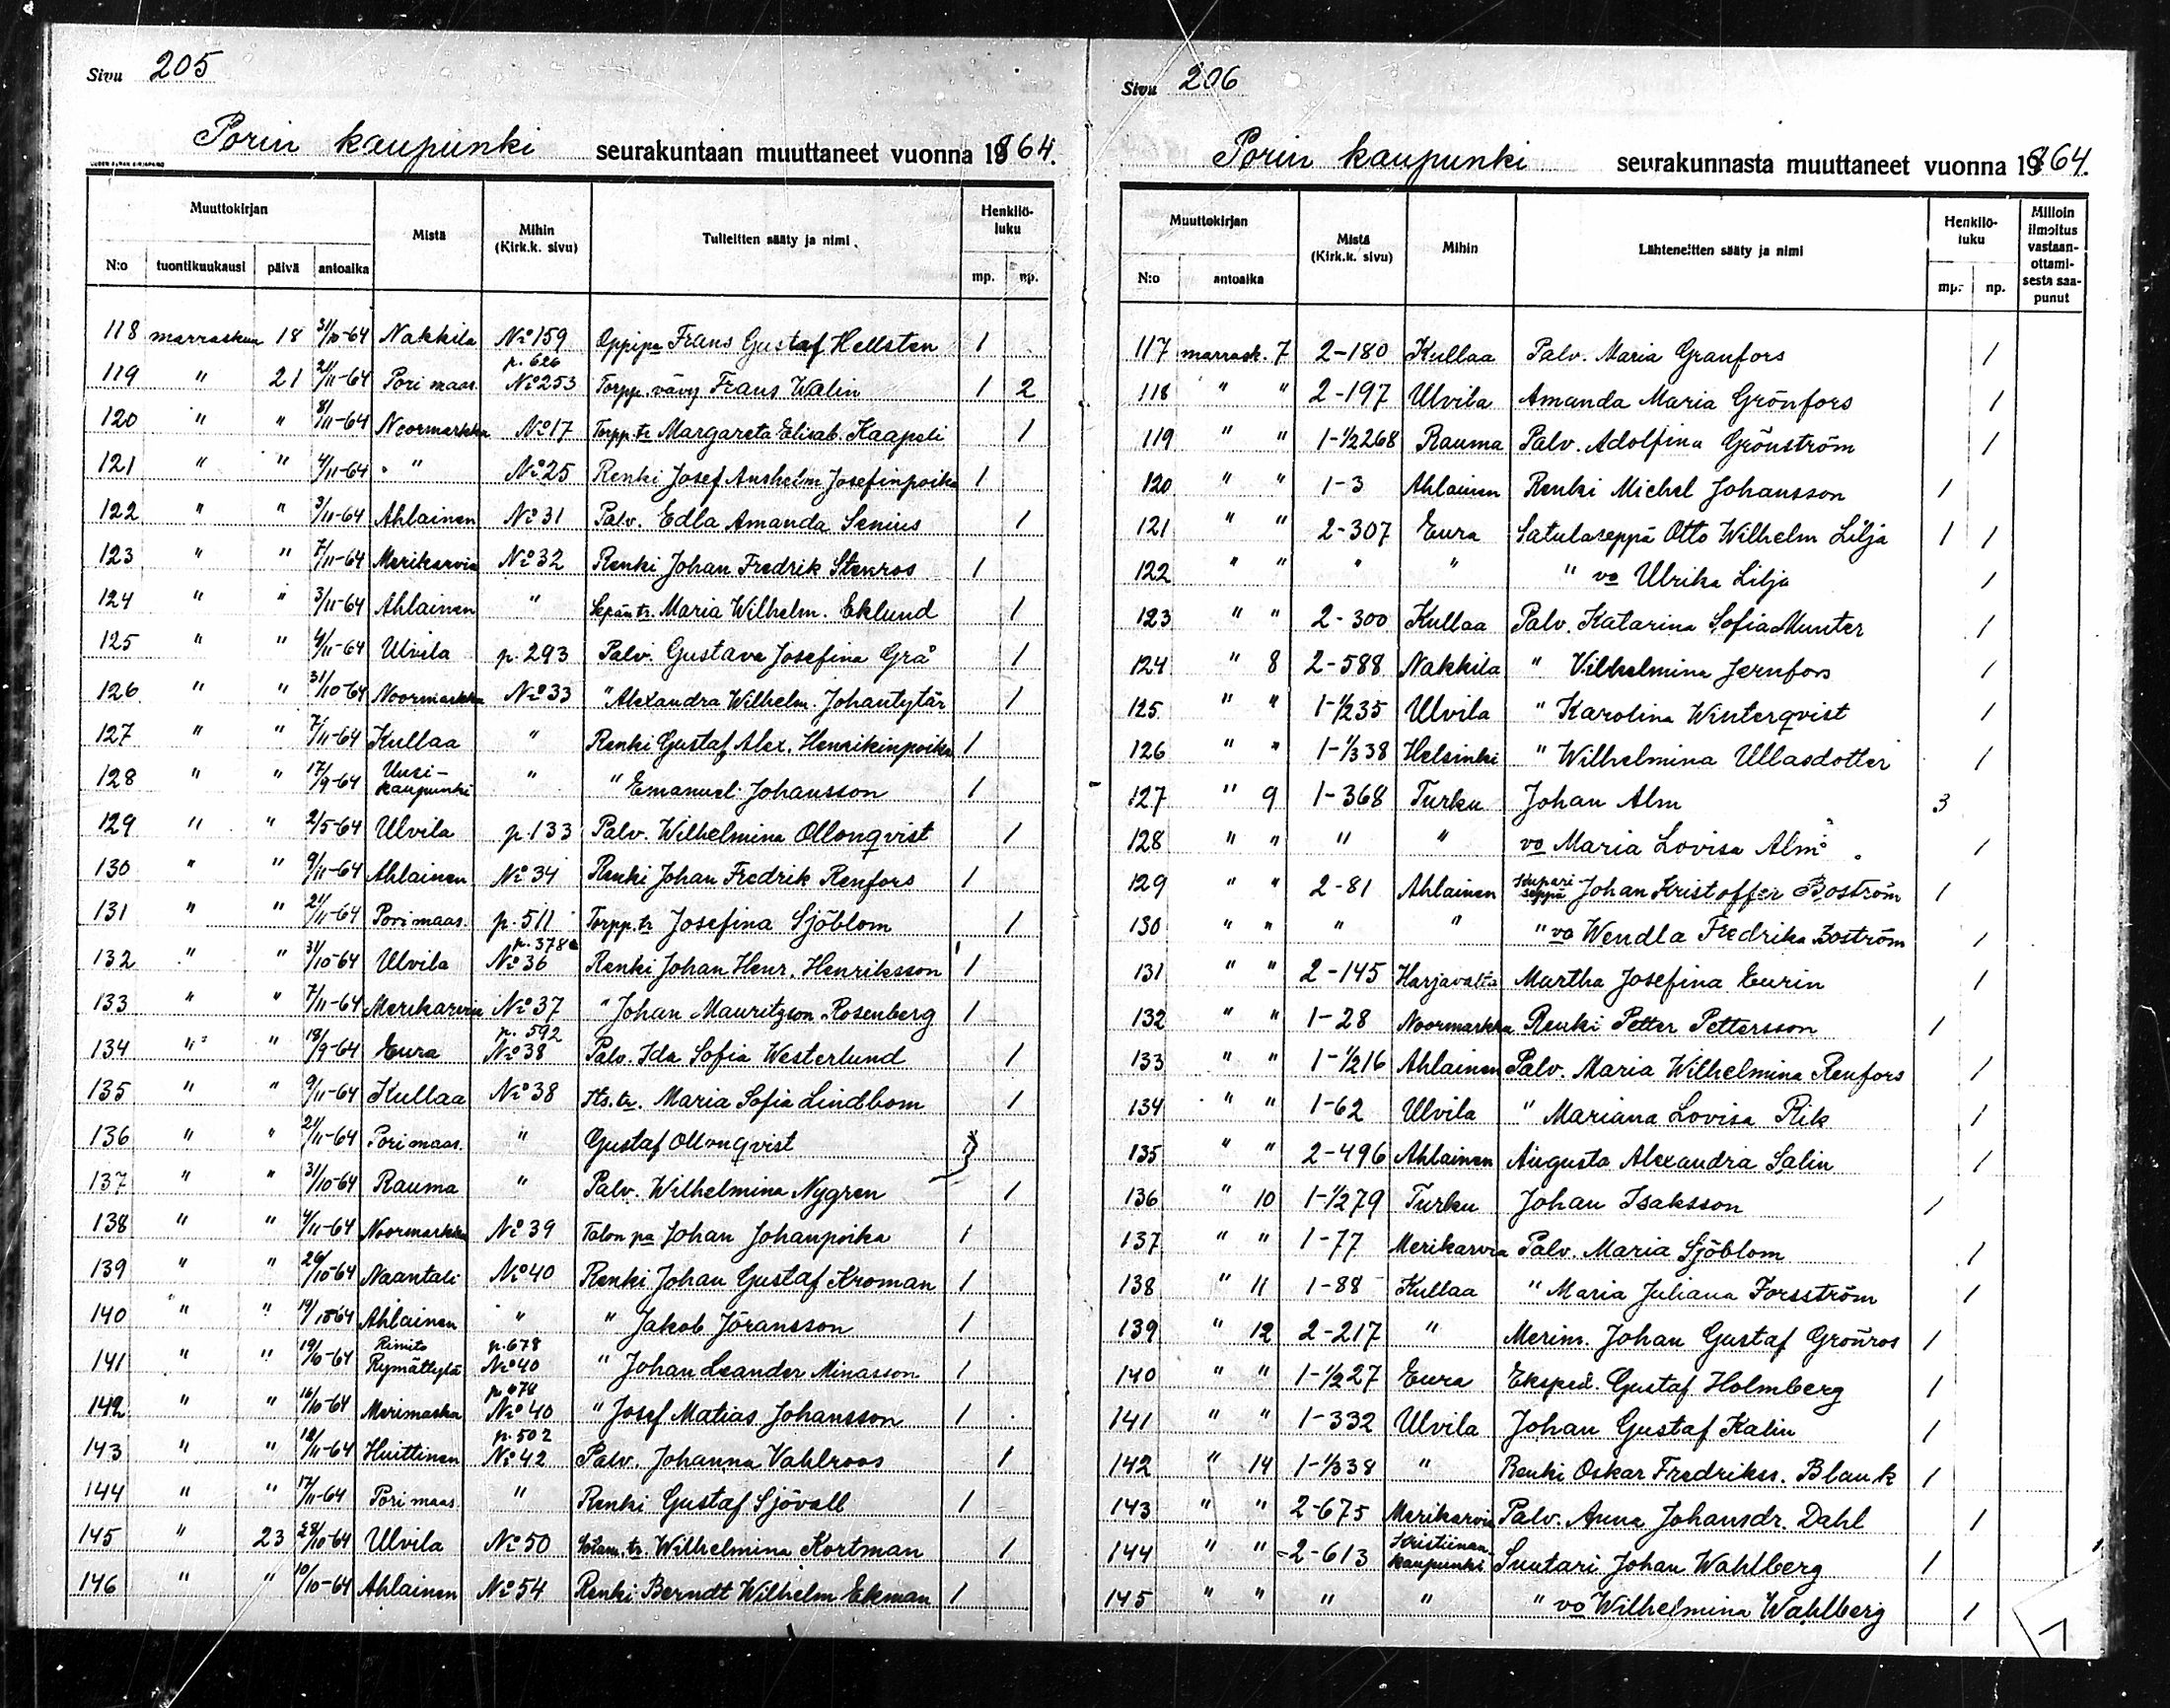 Sivu 205
Porin kaupunki seurakuntaan muuttaneet vuonna 1864.
Muuttokirjan Mistä Mihin (Kirk.k. sivu) Tulleitten sääty ja nimi Henkilö-luku
N:o tuontikuukausi päivä antoaika mp. np.
118 marraskuu 18 31/10-64 Nakkila No 159 Oppipa Frans Gustaf Hellsten 1
p. 626
119 " 21 21/11-64 Pori maas. No 253 Torpp. vävy Frans Walin 1 2
120 " " 8/11-64 Noormarkku No 17 Torpp. tr Margareta Elisab. Kaapeli 1
121 " " 4/11-64 " No 25 Renki Josef Anshelm Josefinpoika 1
122 " " 3/11-64 Ahlainen No 31 Palv. Edla Amanda Senius 1
123 " " 7/11-64 Merikarvia No 32 Renki Johan Fredrik Stenros 1
124 " " 3/11-64 Ahlainen " Sepän tr. Maria Wilhelm. Eklund 1
125 " " 4/11-64 Ulvila p. 293 Palv. Gustava Josefina Grå 1
126 " " 31/10-64 Noormarkku No 33 " Alexandra Wilhelm. Johantytär 1
127 " " 7/11-64 Kullaa " Renki Gustaf Alex. Henrikinpoika 1
128 " " 17/9-64 Uusi-kaupunki " " Emanuel Johansson 1
129 " " 2/5-64 Ulvila p. 133 Palv. Wilhelmina Ollonqvist 1
130 " " 9/11-64 Ahlainen No 34 Renki Johan Fredrik Renfors 1
131 " " 21/11-64 Pori maas. p. 511 Torpp. tr Josefina Sjöblom 1
p. 378
132 " " 31/10-64 Ulvila No 36 Renki Johan Henr. Henriksson 1
133 " " 7/11-64 Merikarvia No 37 " Johan Mauritzson Rosenberg 1
p. 592
134 " " 18/9-64 Eura No 38 Palv. Ida Sofia Westerlund 1
135 " " 9/11-64 Kullaa No 38 Its. tr. Maria Sofia Lindbom 1
136 " " 21/11-64 Pori maas. " Gustaf Ollonqvist
137 " " 31/10-64 Rauma " Palv. Wilhelmina Nygren 1
138 " " 4/11-64 Noormarkku No 39 Talon pa Johan Johanpoika 1
139 " " 26/10-64 Naantali No 40 Renki Johan Gustaf Kroman 1
140 " " 19/10-64 Ahlainen " " Jakob Jöransson 1
Rimito p. 678
141 " " 19/10-64 Rymättylä No 40 " Johan Leander Minasson 1
p. 678
142 " " 16/10-64 Merimaska No 40 " Josef Matias Johansson 1
p. 502
143 " " 18/11-64 Huittinen No 42 Palv. Johanna Vahlroos 1
144 " " 17/11-64 Pori maas. " Renki Gustaf Sjövall 1
145 " 23 28/10-64 Ulvila No 50 tr. Wilhelmina Kortman 1
146 " " 10/10-64 Ahlainen No 54 Renki Berndt Wilhelm Ekman 1
Sivu 206
Porin kaupunki seurakunnasta muuttaneet vuonna 1864.
Muuttokirjan Mistä (Kirk.k. sivu) Mihin Lähteneitten sääty ja nimi Henkilö-luku Milloin ilmoitus vastaan-ottami-sesta saa-punut
N:o antoaika mp. np.
117 marrask. 7 2-180 Kullaa Palv. Maria Granfors 1
118 " " 2-197 Ulvila Amanda Maria Grönfors 1
119 " " 1-1/2 268 Rauma Palv. Adolfina Grönström 1
120 " " 1-3 Ahlainen Renki Michel Johansson 1
121 " " 2-307 Eura Satulaseppä Otto Wilhelm Lilja 1 1
122 " " " " " vo Ulrika Lilja 1
123 " " 2-300 Kullaa Palv. Katarina Sofia Munter 1
124 " 8 2-588 Nakkila " Vilhelmina Jernfors 1
125 " " 1-1/2 35 Ulvila " Karolina Winterqvist 1
126 " " 1-1/3 38 Helsinki " Wilhelmina Ullasdotter 1
127 " 9 1-368 Turku Johan Alm 3
128 " " " " vo Maria Lovisa Alm 1
129 " " 2-81 Ahlainen Kupari-seppä Johan Kristoffer Boström 1
130 " " " " " vo Wendla Fredrika Boström 1
131 " " 2-145 Harjavalta Martha Josefina Eurin 1
132 " " 1-28 Noormarkku Renki Petter Pettersson 1
133 " " 1-1/2 16 Ahlainen Palv. Maria Wilhelmina Renfors 1
134 " " 1-62 Ulvila " Mariana Lovisa Rik 1
135 " " 2-496 Ahlainen Augusta Alexandra Salin 1
136 " 10 1-1/2 79 Turku Johan Isaksson 1
137 " " 1-77 Merikarvia Palv. Maria Sjöblom 1
138 " 11 1-88 Kullaa " Maria Juliana Forsström 1
139 " 12 2-217 " Merim. Johan Gustaf Grönros 1
140 " " 1-1/2 27 Eura Eksped. Gustaf Holmberg 1
141 " " 1-332 Ulvila Johan Gustaf Kalin 1
142 " 14 1-1/3 38 " Renki Oskar Fredrikss. Blank 1
143 " " 2-675 Merikarvia Palv. Anna Johansdr. Dahl 1
144 " " 2-613 Kristiinan-kaupunki Suutari Johan Wahlberg 1
145 " " " " " vo Wilhelmina Wahlberg 1